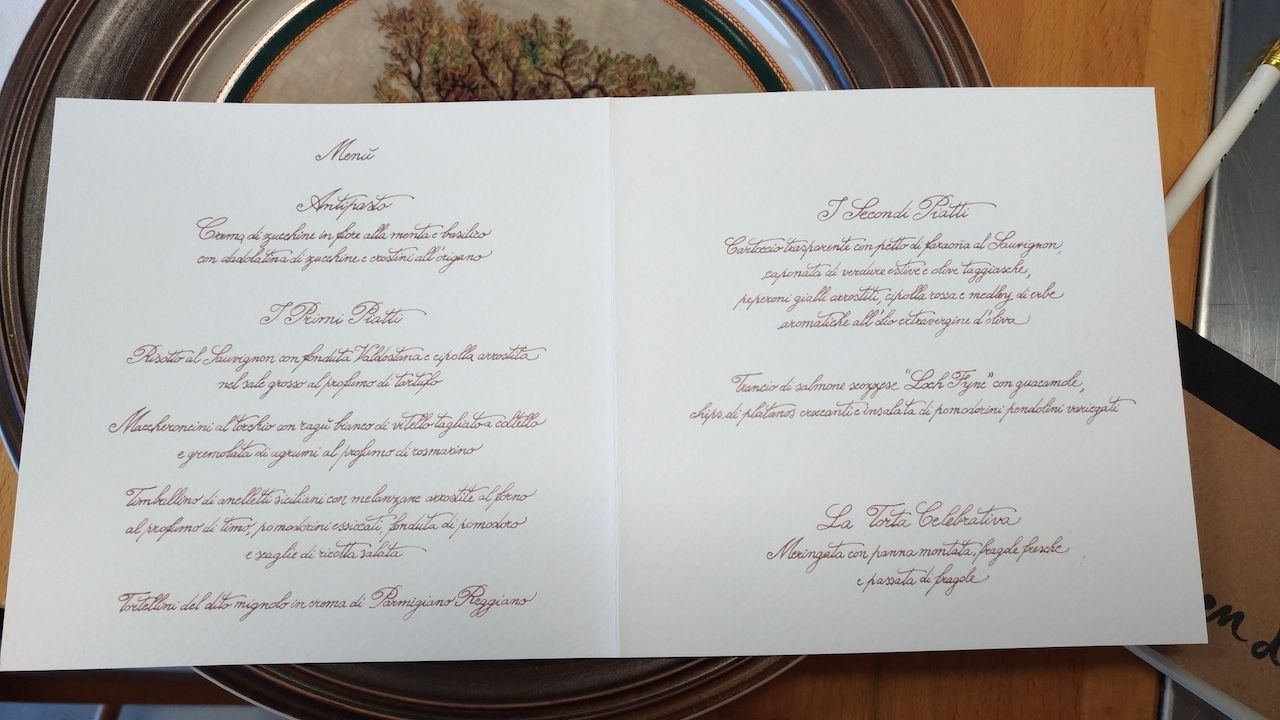 Menù
Antipasto
Crema di zucchine in fiore alla menta e basilico
con dadolatina di zucchine e crostini all'origano
I Primi Piatti
Risotto al Sauvignon con fonduta Valdostana e cipolla arrostita
nel sale grosso al profumo di tartufo
Maccheroncini al torchio con ragù bianco di vitello tagliato a coltello
e gremolata di agrumi al profumo di rosmarino
Timballino di anelletti siciliani con melanzane arrostite al forno
al profumo di timo, pomodorini essiccati, fonduta di pomodoro
e scaglie di ricotta salata
Tortellini del dito mignolo in crema di Parmigiano Reggiano
I Secondi Piatti
Cartoccio trasparente con petto di faraona al Sauvignon,
caponata di verdure estive e olive taggiasche,
peperoni gialli arrostiti, cipolla rossa e medley di erbe
aromatiche all'olio extravergine d'oliva
Trancio di salmone scozzese "Loch Fyne" con guacamole,
chips di platanos croccanti e insalata di pomodorini pendolini variegati
La Torta Celebrativa
Meringata con panna montata, fragole fresche
e passata di fragole